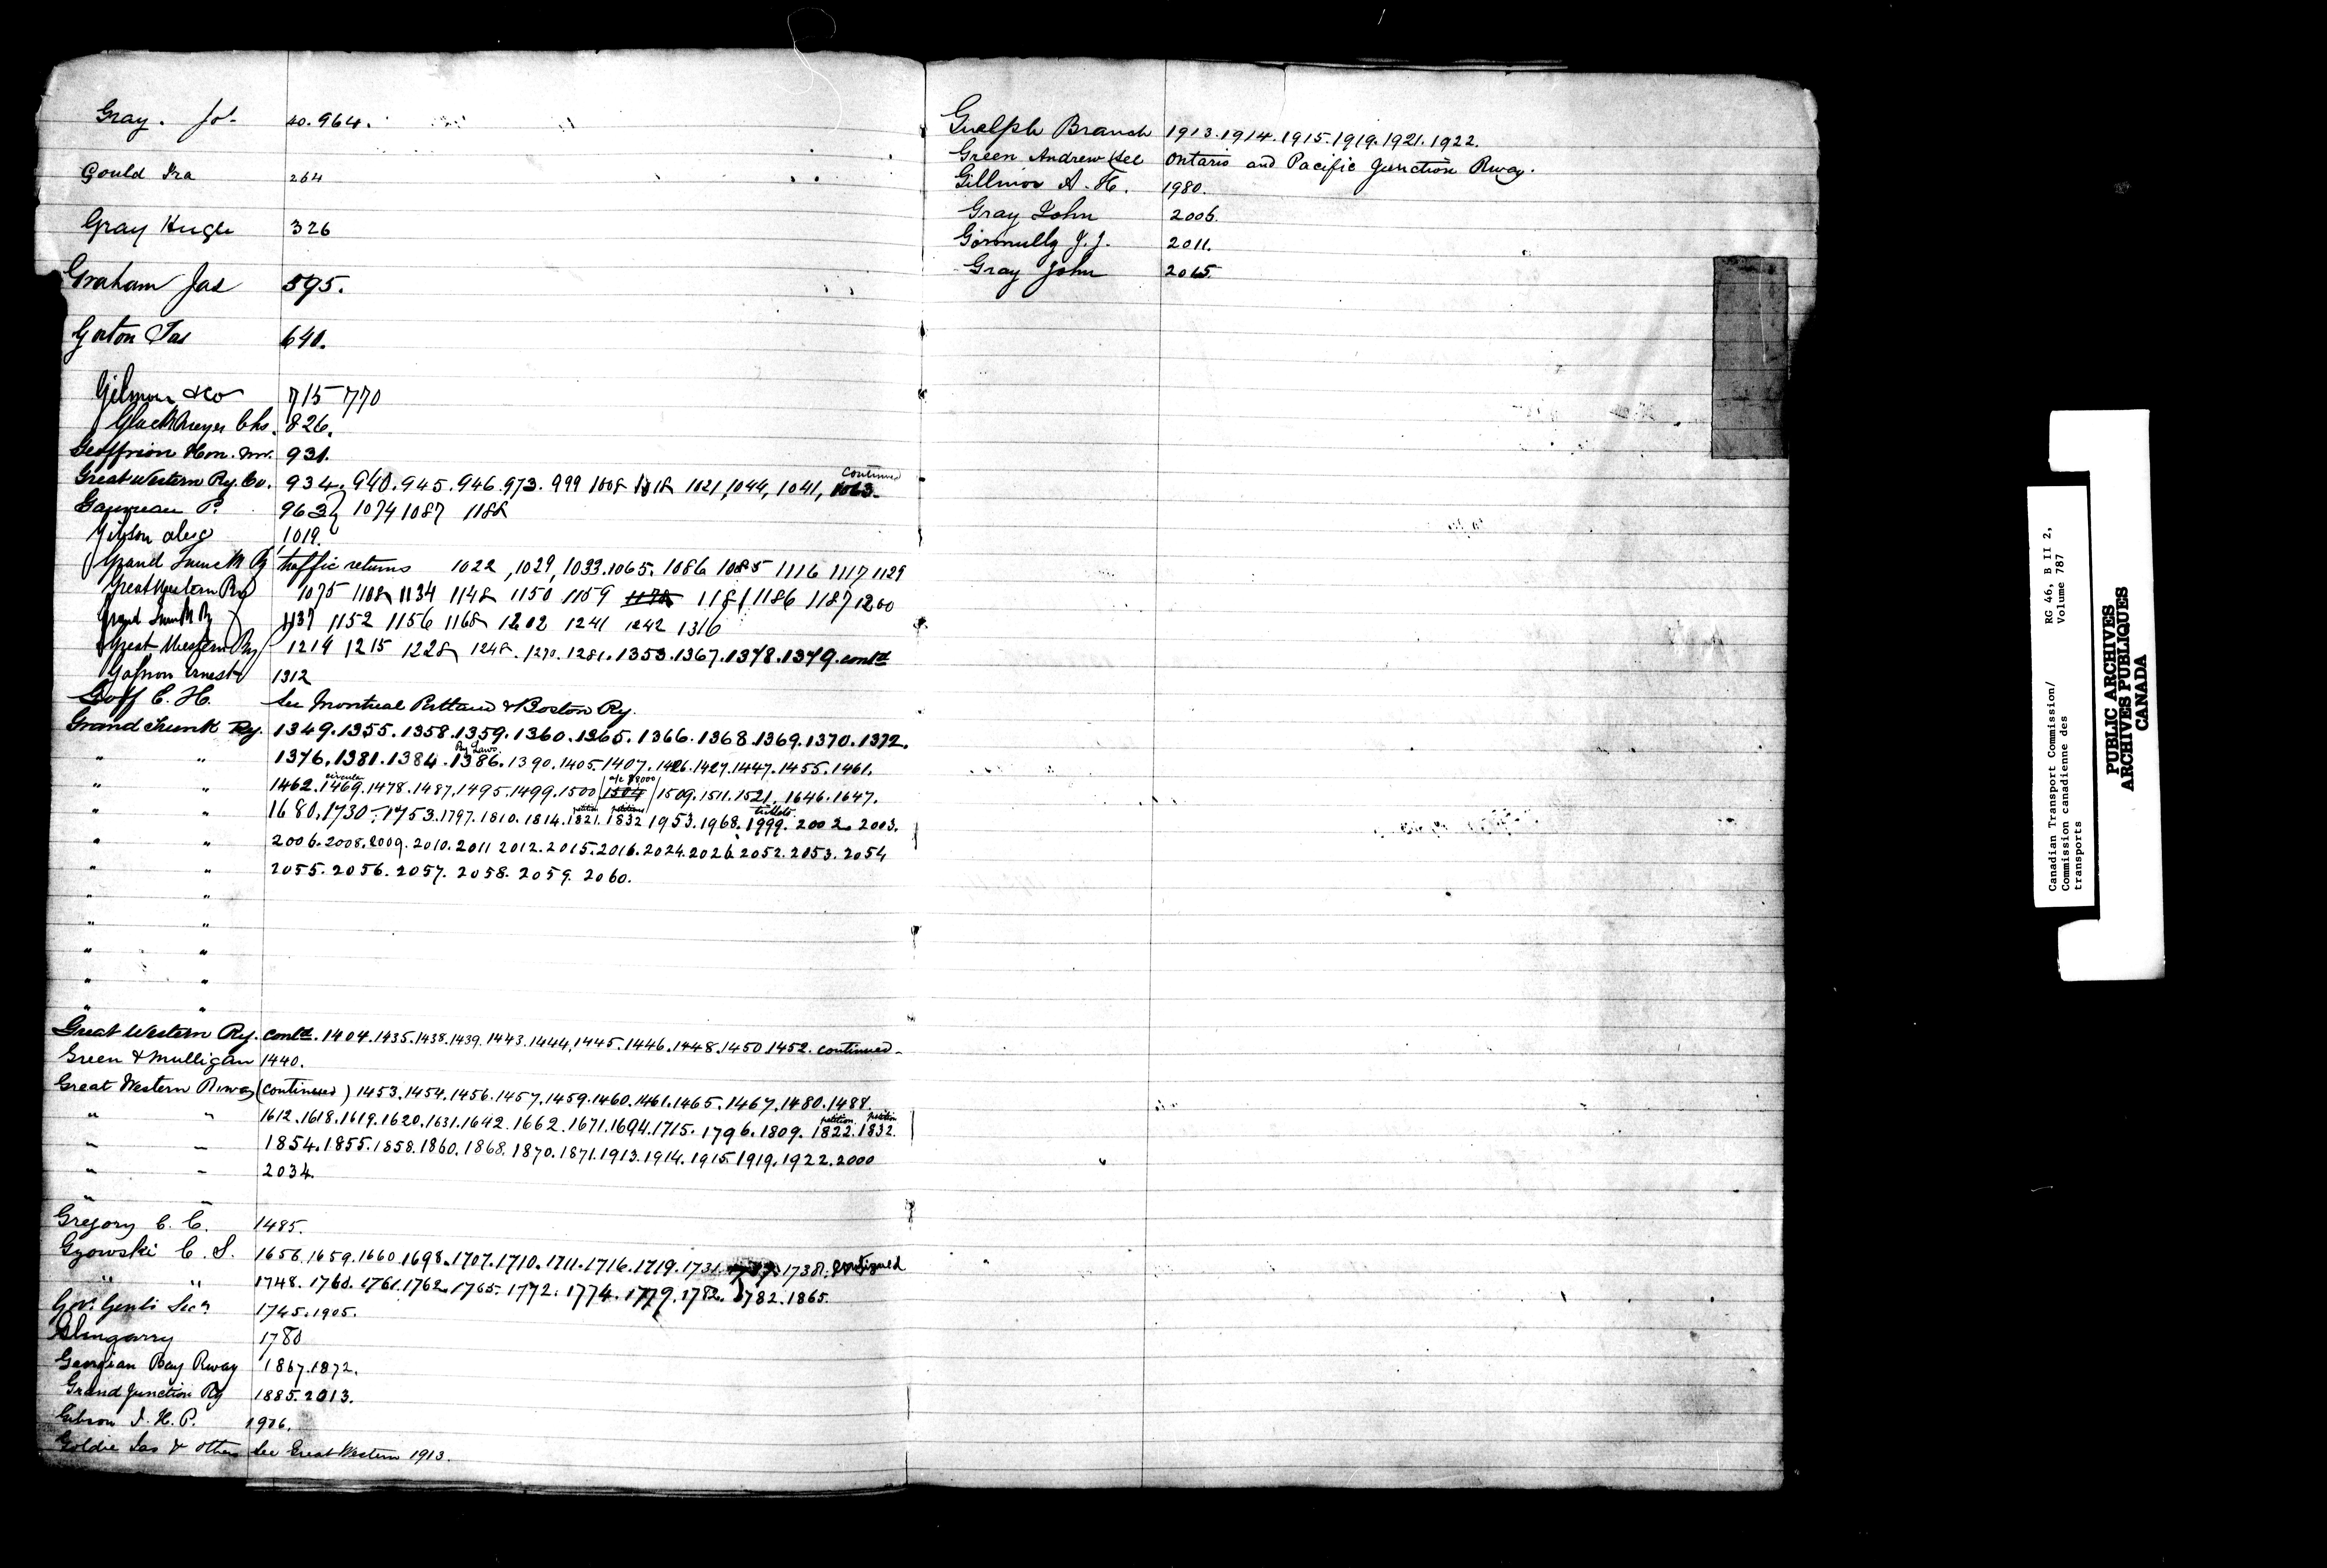 Gray. Jos. 40. 964.
Gould Ira 264
Gray Hugh 326
Graham Jas 595.
Gorton Jas 640.
Gilmour & Co 715 770
Glackmeyer Chs. 826.
Geoffrion Hon. Mr. 931.
Great Western Ry. Co. 934. 940. 945. 946. 973. 999 1008 1018 1021, 1044, 1041, 1063. continued
P. 963 1074 1087 1188
Gibson Alex 1019.
Grand Trunk Ry traffic returns 1022, 1029, 1033. 1065. 1086 1085 1116 1117 1129
Great Western Ry 1075 1108 1134 1148 1150 1159 1178 1181 1186 1187 1200
Grand Trunk Ry 1137 1152 1156 1168 1202 1241 1242 1316
Great Western Ry 1214 1215 1228 1248. 1270. 1281. 1353. 1367. 1378. 1379. contd
Gagnon Ernest 1312
Goff C. H. See Montreal Portland & Boston Ry.
Grand Trunk Ry. 1349. 1355. 1358. 1359. 1360. 1365. 1366. 1368. 1369. 1370. 1372.
" " 1376. 1381. 1384. 1386. By Laws. 1390. 1405. 1407. 1426. 1427. 1447. 1455. 1461.
" " 1462. 1469. circular 1478. 1487. 1495. 1499. 1500 1504 a/c $8000 1509. 1511. 1521. 1646. 1647.
" " 1680. 1730. 1753. 1797. 1810. 1814. 1821. petition 1832 petitions 1953. 1968. 1999. tickets. 2002. 2003.
" " 2006. 2008. 2009. 2010. 2011 2012. 2015. 2016. 2024. 2026. 2052. 2053. 2054
" " 2055. 2056. 2057. 2058. 2059. 2060.
" "
" "
" "
" "
" "
Great Western Ry. contd. 1404. 1435. 1438. 1439. 1443. 1444. 1445. 1446. 1448. 1450. 1452. continued
Green & Mulligan 1440.
Great Western Rway (continued) 1453. 1454. 1456. 1457. 1459. 1460. 1461. 1465. 1467. 1480. 1488.
" " 1612. 1618. 1619. 1620. 1631. 1642. 1662. 1671. 1694. 1715. 1796. 1809. 1822. petition 1832. petition
" " 1854. 1855. 1858. 1860. 1868. 1870. 1871. 1913. 1914. 1915. 1919. 1922. 2000
" " 2034.
" "
Gregory C. C. 1485.
Gzowski C. S. 1656. 1659. 1660 1698. 1707. 1710. 1711. 1716. 1719. 1731. 1738. continued
" " 1748. 1760. 1761. 1762. 1765. 1772. 1774. 1779. 1782. 1782. 1865.
Gov. Genls Secy 1745. 1905.
Glengarry 1780
Georgian Bay Rway 1867. 1872.
Grand Junction Ry 1885. 2013.
Gibson J. H. P. 1906.
Goldie Jas & others See Great Western 1913.
Guelph Branch 1913. 1914. 1915. 1919. 1921. 1922.
Green Andrew (See Ontario and Pacific Junction Rway.
Gillmor A. H. 1980.
Gray John 2006.
Gormully J. J. 2011.
Gray John 2065.
Canadian Transport Commission/ RG 46, B II 2,
Commission canadienne des Volume 787
transports
PUBLIC ARCHIVES
ARCHIVES PUBLIQUES
CANADA